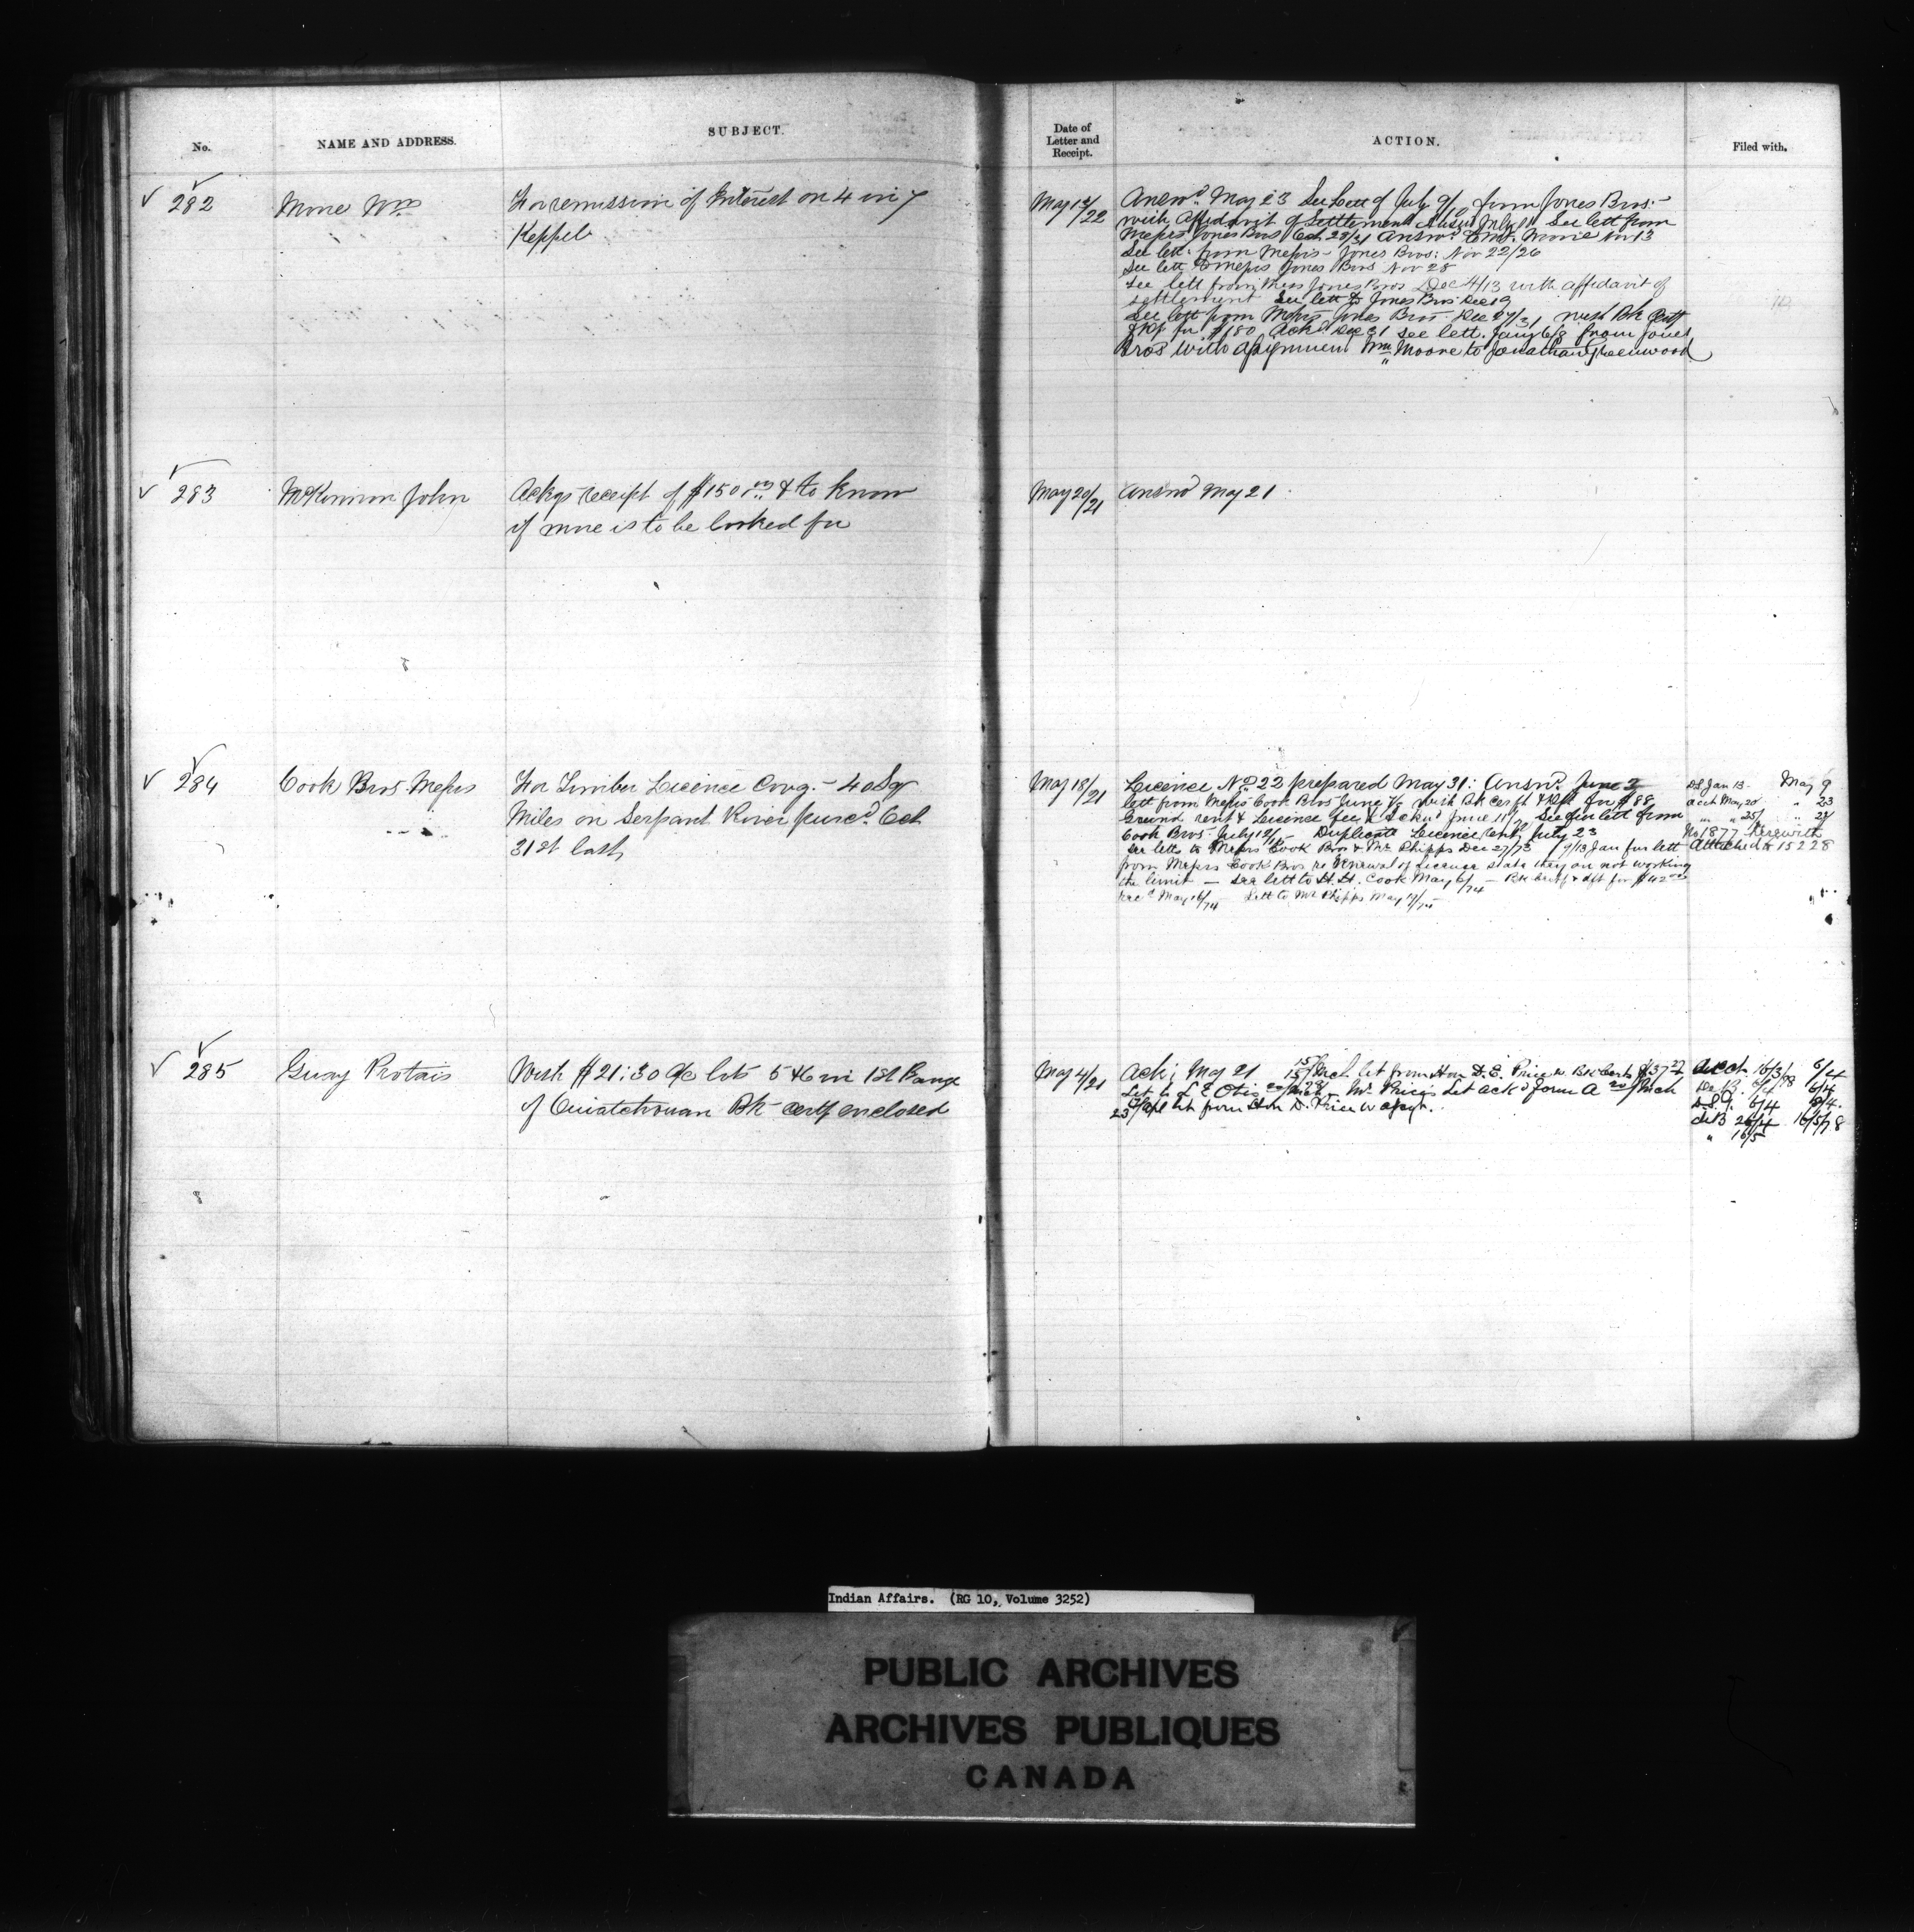 No.
NAME AND ADDRESS.
SUBJECT.
Date of
Letter and
Receipt.
ACTION.
Filed with.
✓ 282
Moore Wm
For remission of Interest on 4 in 7
Keppel
May 13/22
Answd. May 23 See Lett of July 9/ from Jones Bros.
with Affidavit of Settlement July See lett from
Messrs Jones Bros Oct. 28/31 Answd. to Mr. Moore Nov 13
See lett. from Messrs Jones Bros: Nov 22/26
See lett to Messrs Jones Bros Nov 28
See lett from Mess Jones Bros Dec 4/13 with affidavit of
settlement See lett to Jones Bros Dec 19
See lett from Messrs Jones Bros Dec 27/31 with Bk Certf
for $180 Ackd Dec 31 See lett. Jany 6/8 from Jones
Bros with assignment Wm Moore to Jonathan Greenwood
✓ 283
McKinnon John
Ackgs receipt of $150 & to know
if more is to be looked for
May 20/21
Answd May 21
✓ 284
Cook Bros Messrs
For Timber Licence Covg. 40 Sq
Miles on Serpant River purcd. Oct
31st last
May 18/21
Licence No. 22 prepared May 31: Answd. June 3
lett from Messrs Cook Bros June 7/ with Bk Cerft & for $88
Ground rent & Licence fee & Ackd June 11/ See fur lett from
Cook Bros July 12/15 Duplicate Licence sent July 23
See letts to Messrs Cook Bros & Mr Phipps Dec 27/73 9/13 Jan fur lett
from Messrs Cook Bros re renewal of License state they are not working
the limit — See lett to H. H. Cook May 6/74 — Bk Certf & dft for $42
recd May 16/74 Lett to Mr Phipps May
D.S. Jan 13 May 9
Acct May 20 " 23
" " 25/ " 27
No 1877 herewith
Attached to 15228
✓ 285
Guay Protais
With $21:30 a/c lots 5 & 6 in 1st Range
of Ouiatchouan Bk certf enclosed
May 4/21
Ack; May 21 15/15 Mch let from Hon D. E. Price w Bk Certs $37
Let to L E Otis 20/Mch/78 Mr Price's Let ackd form A 20/Mch
23/Apl let from Hon D. Price w assgn.
Acct 16/3/78 6/4
6/4 6/4
D.S.J. 6/4 8/4.
26/4 16/5/78
" 16/5
Indian Affairs. (RG 10, Volume 3252)
PUBLIC ARCHIVES
ARCHIVES PUBLIQUES
CANADA